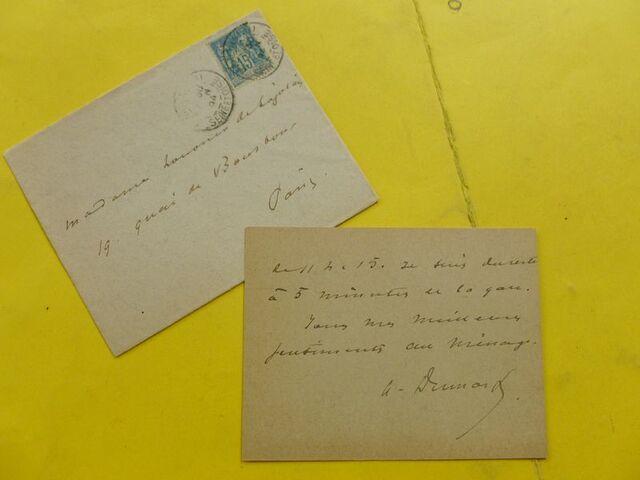 15
Madame
19. quai de Bourbon
Paris.
de 11 h à 15. Je suis du reste
à 5 minutes de la gare.
Tous mes meilleurs
sentiments au ménage.
A-